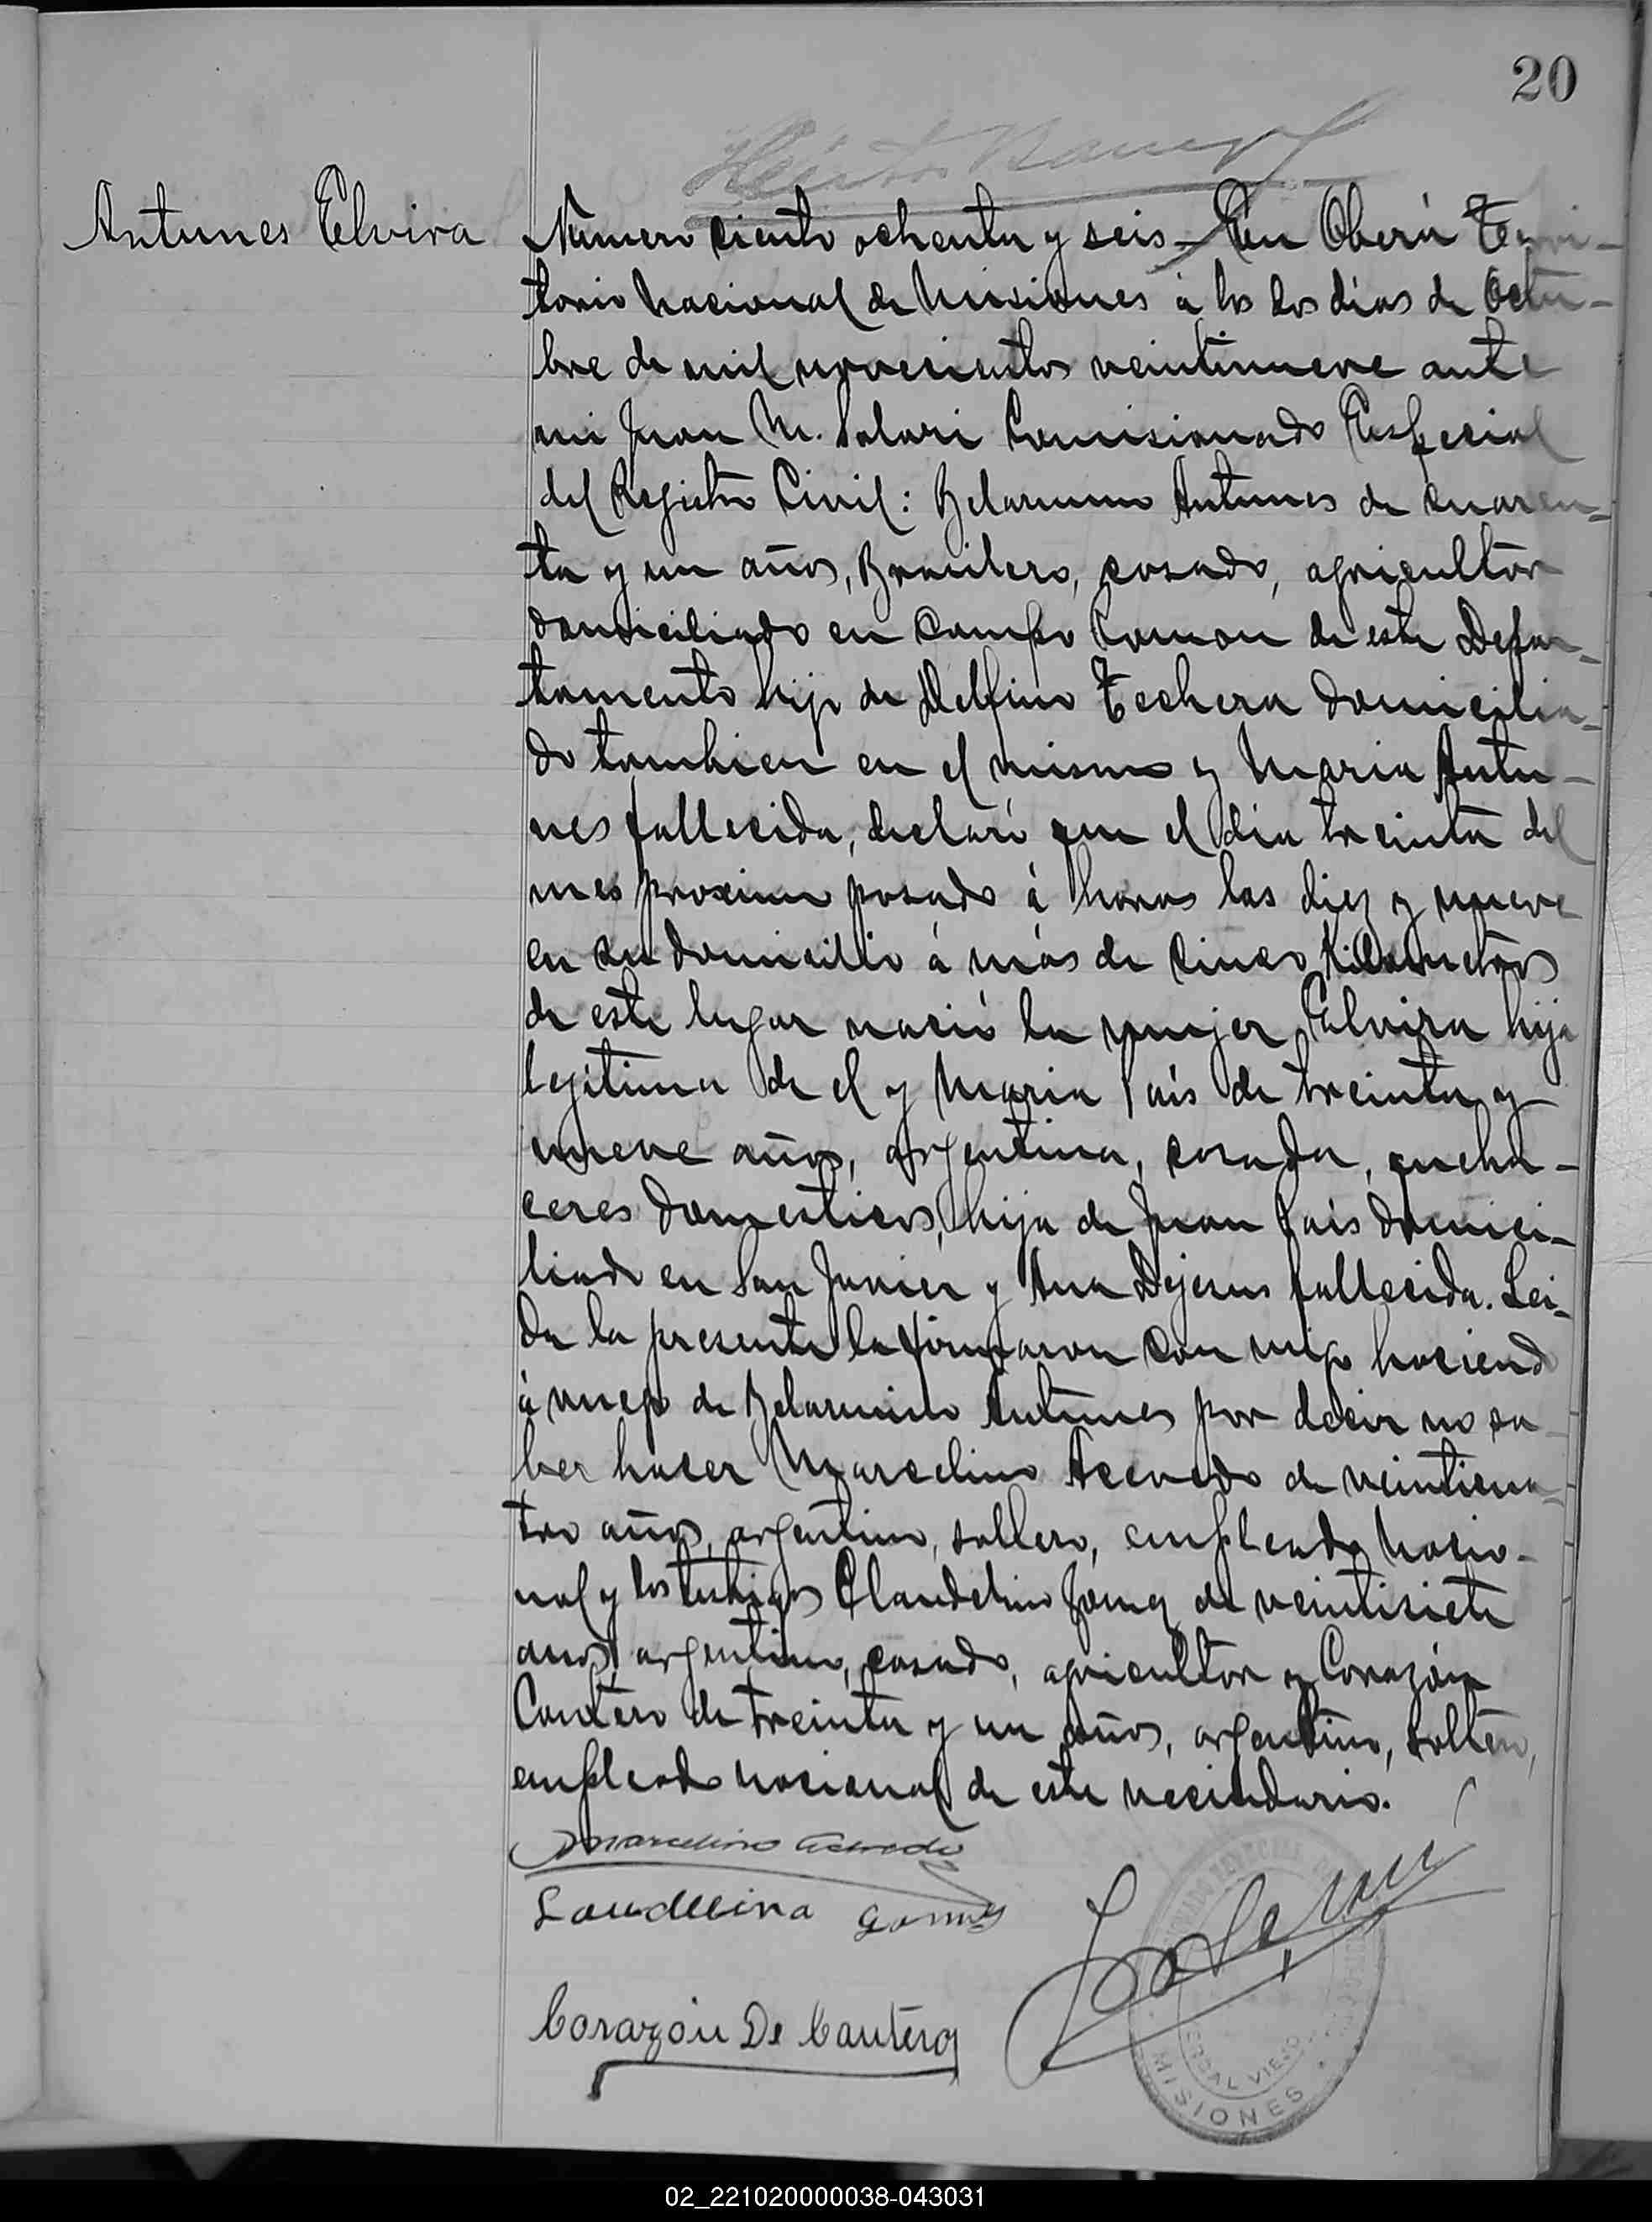 20
Antunes Elvira
Número ciento ochenta y seis — En Oberá Terri-
torio Nacional de Misiones á los dos días de Octu-
bre de mil novecientos veintinueve ante
mi Juan M. Solari Comisionado Especial
del Registro Civil: Belarmino Antunes de cuaren-
ta y un años, Brasilero, casado, agricultor
domiciliado en Campo Ramon de este Depar-
tamento hijo de Delfino Techera domicilia-
do tambien en el mismo y Maria Antu-
nes fallecida, declaró que el día treinta del
mes proximo pasado á horas las diez y nueve
en su domicilio á más de cinco Kilometros
de este lugar nació la mujer Elvira hija
legítima de el y Maria País de treinta y
nueve años, argentina, casada, queha-
ceres domesticos, hija de Juan País domici-
liado en San Javier y Ana Dejesus fallecida. Lei-
da la presente la firmaron con migo haciendo
á ruego de Belarmino Antunes por decir no sa-
ber hacer Marcelino Acevedo de veinticua-
tro años, argentino, soltero, empleado nacio-
nal y los testigos Claudelino Gomez de veintisiete
anos, argentino, casado, agricultor y Corazón
Cantero de treinta y un años, argentino, soltero,
empleado nacional de este vecindario.
Marcelino Acevedo
Laudelino Gomez
Corazón De Cantero
MISIONES
02_221020000038-043031